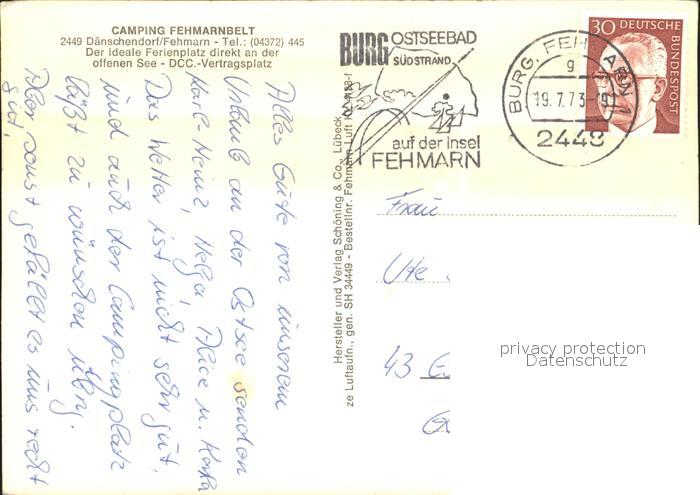 CAMPING FEHMARNBELT
2449 Dänschendorf/Fehmarn - Tel.: (04372) 445
Der ideale Ferienplatz direkt an der
offenen See - DCC.-Vertragsplatz
Alles Gute von unserem
Urlaub an der Ostsee senden
Karl Heinz, Helga, Alice u.
Das Wetter ist nicht sehr gut,
und auch der Campingplatz
läßt zu wünschen übrig.
Aber sonst gefällt es uns recht
gut.
Hersteller und Verlag Schöning & Co., Lübeck
ze Luftaufn., gen. SH 34449 - Bestellnr. Fehmarn Luft
BURG OSTSEEBAD
SÜDSTRAND
auf der Insel
FEHMARN
BURG, FEHMARN
g
19.7.73-19
2448
30 DEUTSCHE
BUNDESPOST
Frau
Ute
43 E
privacy protection
Datenschutz